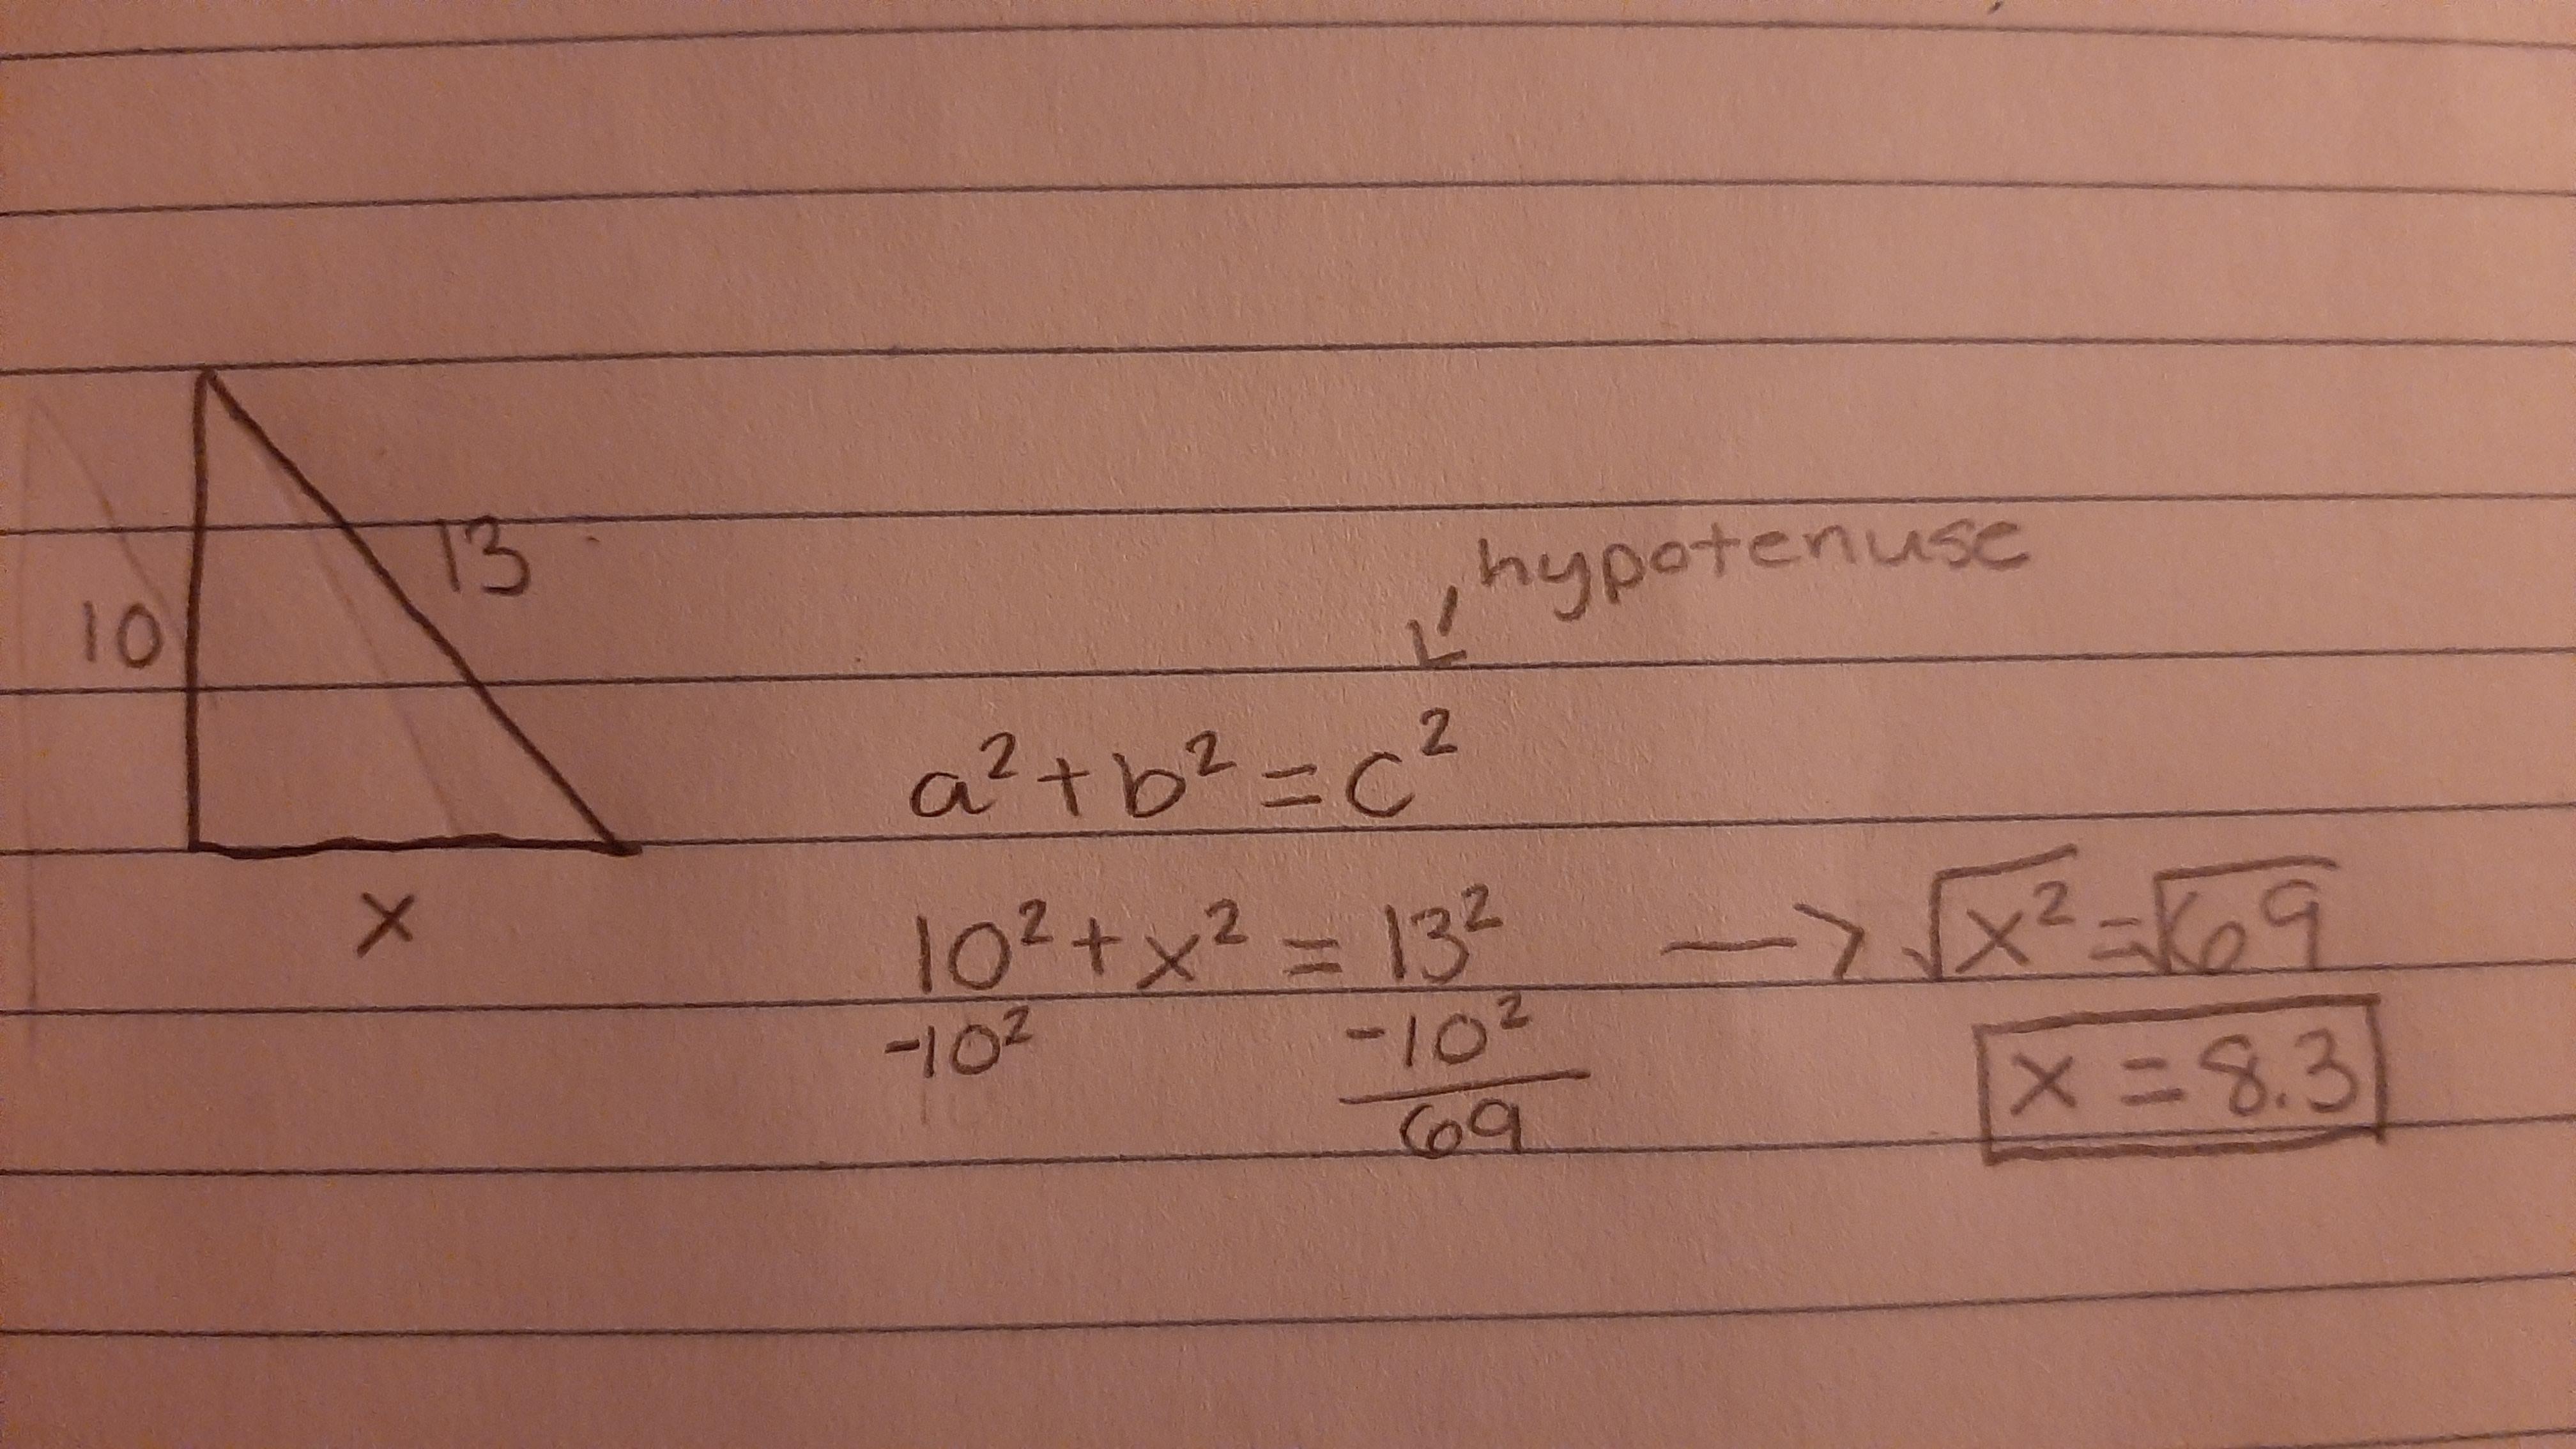 13
10
x
hypotenuse
a² + b² = c²
10² + x² = 13² —> √x² = √69
-10² -10²
69
x = 8.3